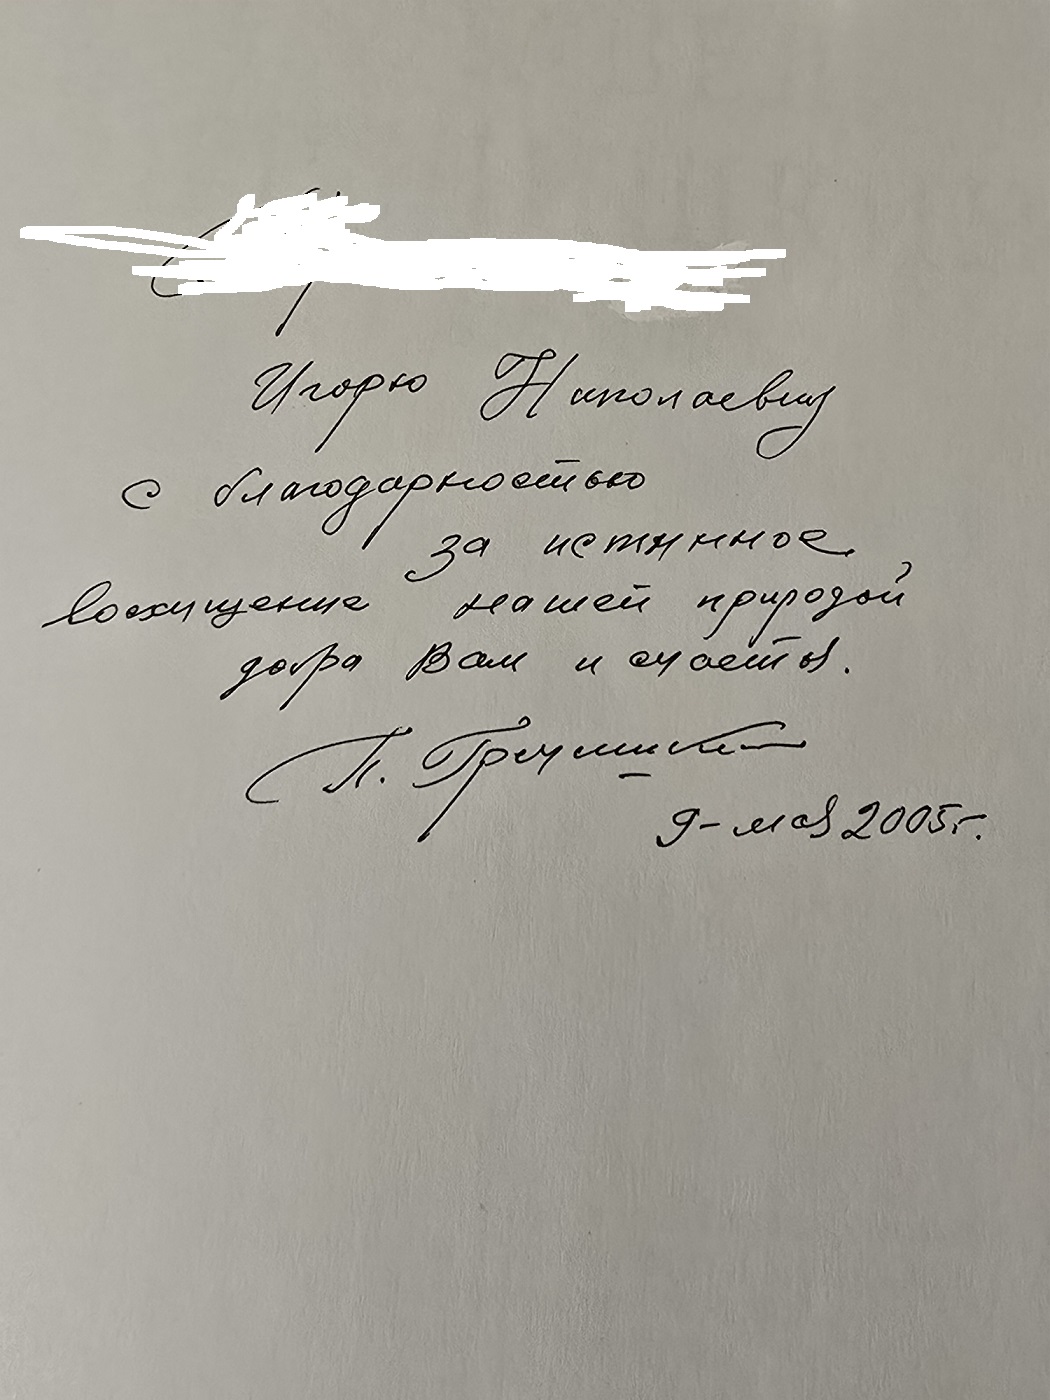 Игорю Николаевичу
с благодарностью
за истинное
восхищение нашей природой
добра Вам и счастья.
П.
9-мая 2005г.